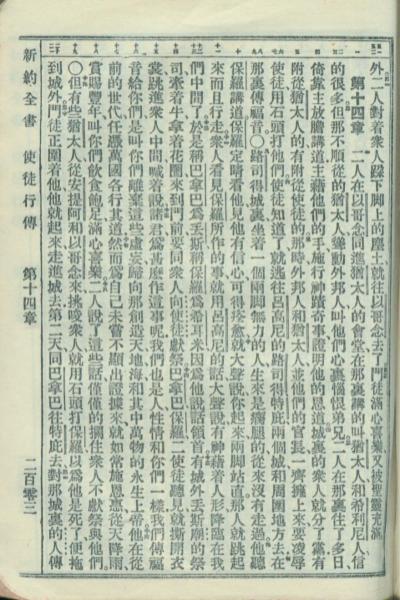 外二人對着衆人跺下脚上的塵土就往以哥念去了門徒滿心喜樂又被聖靈充滿
第十四章 二人在以哥念同進猶太人的會堂在那裏講的叫猶太人和希利尼人信
的很多但那不順從的猶太人聳動外邦人叫他們心裏惱恨弟兄二人在那裏住了多日
倚靠主放膽講道主藉他們的手施行神蹟奇事證明他的恩道城裏的衆人就分了黨有
附從猶太人的有附從使徒的那時外邦人和猶太人並他們的官長一齊擁上來要凌辱
使徒用石頭打他們使徒知道了就逃往呂高尼的路司得特庇兩個城和周圍地方去在
那裏傳福音○路司得城裏坐着一個兩脚無力的人生來是瘸腿的從來沒有走過他聽
保羅講道保羅定睛看他見他有信心可得痊愈就大聲說你起來兩脚站直那人就跳起
來而且行走衆人看見保羅所作的事就用呂高尼的話大聲說有神藉着人形降臨在我
們中間了於是稱巴拿巴爲丟斯稱保羅爲希耳米因爲他說話領首有城外丟斯廟的祭
司牽着牛拿着花圈來到門前要同衆人向使徒獻祭巴拿巴保羅二使徒聽見就撕開衣
裳跳進衆人中間喊着說諸君爲甚麼作這事呢我們也是人性情和你們一樣我們傳福
音給你們是叫你們離棄這些虛妄歸向那創造天地海和其中萬物的永生上帝他在從
前的世代任憑萬國各行其道然而爲自己未嘗不顯出證據來就如常施恩惠從天降雨
賞賜豐年叫你們飲食飽足滿心喜樂二人說了這些話僅僅的攔住衆人不獻祭與他們
○但有些猶太人從安提阿和以哥念來挑唆衆人就用石頭打保羅以爲他是死了便拖
到城外門徒正圍着他他就起來走進城去第二天同巴拿巴往特庇去對那城裏的人傳
新約全書 使徒行傳 第十四章 二百零三